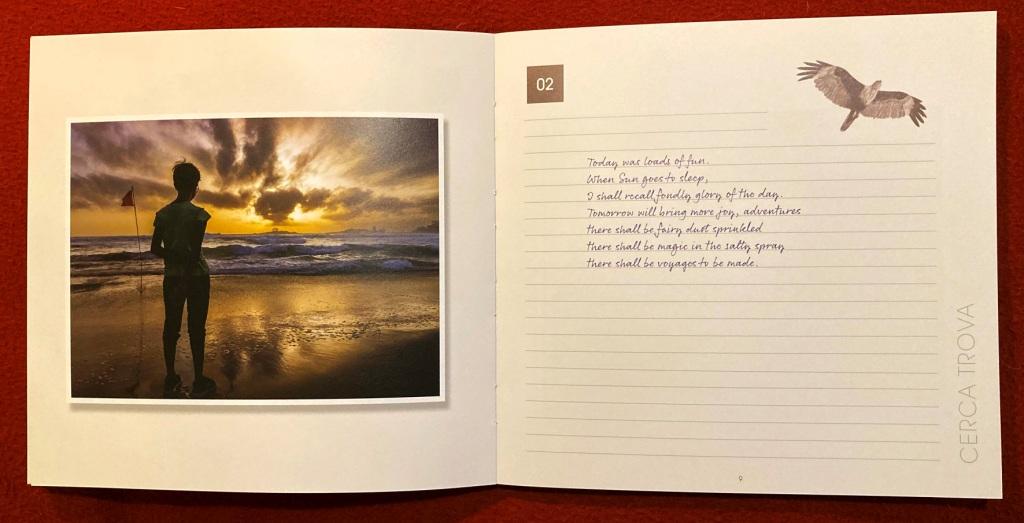 02
Today was loads of fun.
When Sun goes to sleep,
I shall recall fondly glory of the day.
Tomorrow will bring more joy, adventures
there shall be fairy dust sprinkled
there shall be magic in the salty spray
there shall be voyages to be made.
CERCA TROVA
9